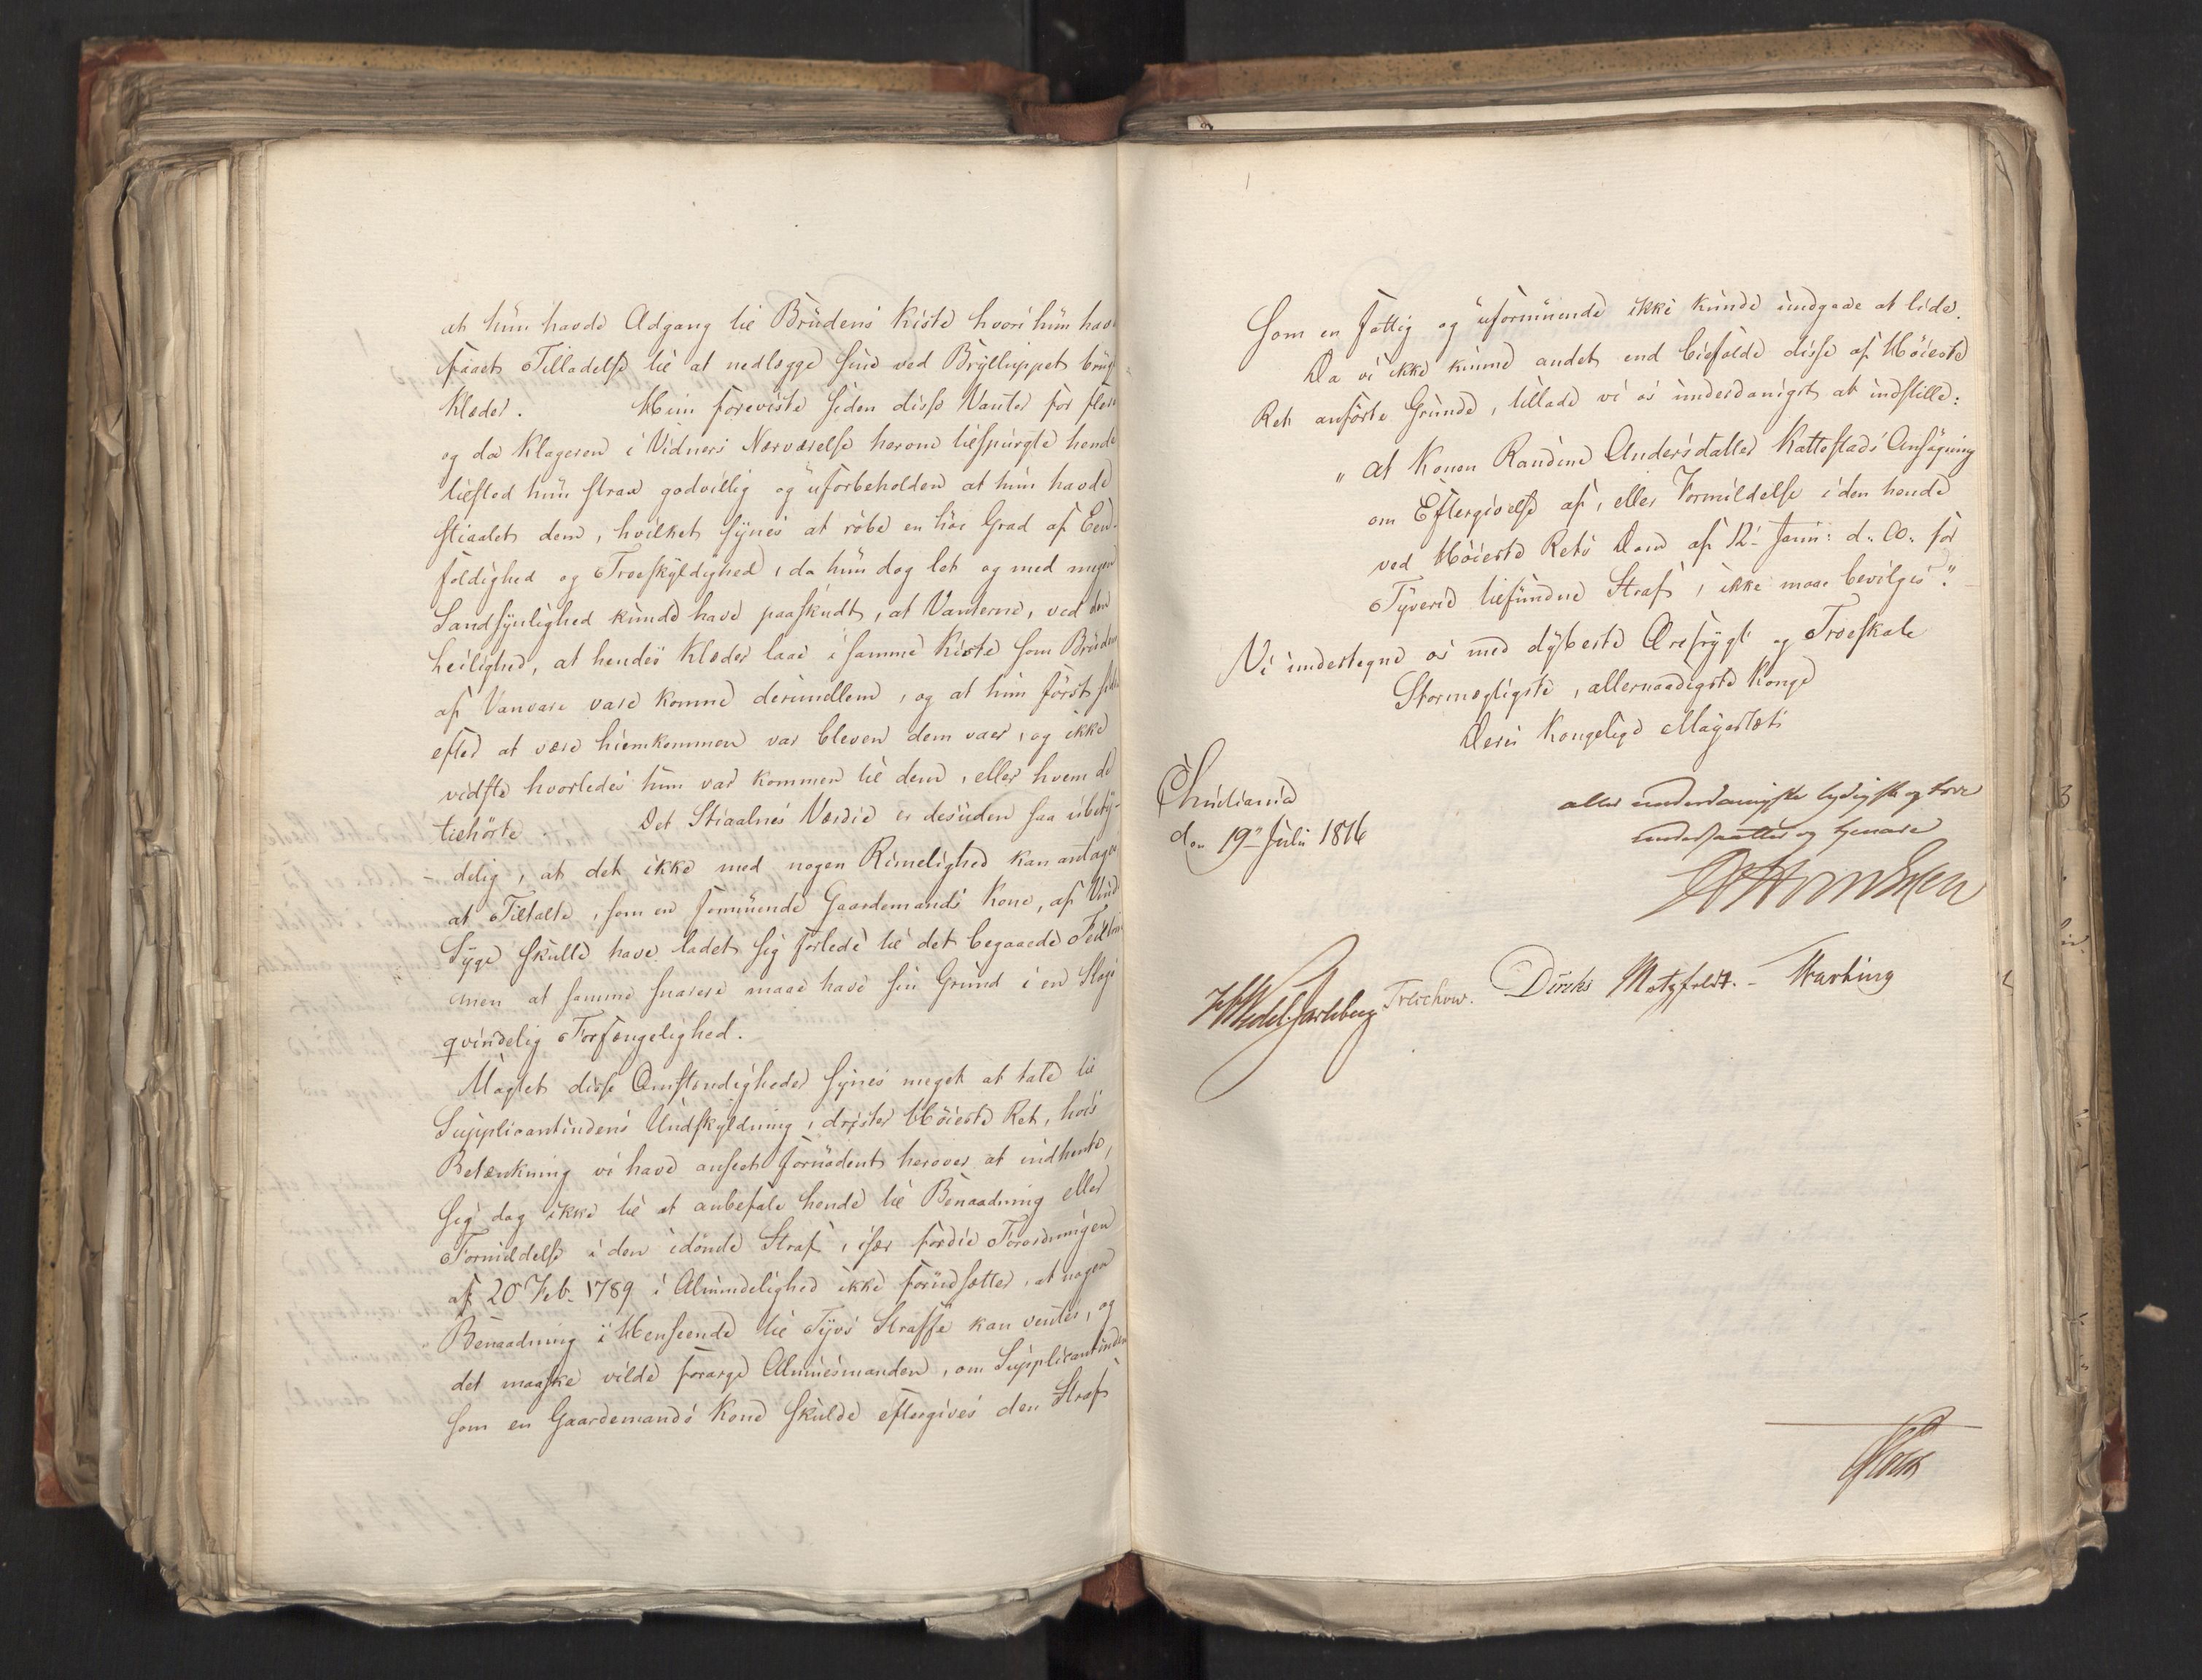 at hun havde Adgang til Brudens Kiste hvori hun hav
faaet Tilladelse til at nedlægge sine ved Brylluppet brug
Klæder. Hun foreviste siden disse Vanter for flere
og da Klageren i Vidners Nærværelse herom tilspurgte hende
tilstod hun strax godvillig og uforbeholden at hun havde
stiaalet dem, hvilket synes at røbe en høi Grad af Een-
foldighed og Troeskyldighed, da hun dog let og med megen
Sandsynlighed kunde have paaskudt, at Vanterne, ved den
Leilighed, at hendes Klæder laae i samme Kiste som Brudens
af Vanvare vare komne derimellem, og at hun først siden
efter at være hiemkommen var bleven dem vaer, og ikke
vidste hvorledes hun var kommen til dem, eller hvem de
tilhørte. Det Stiaalnes Værdie er desuden saa ubety-
delig, at det ikke med nogen Rimelighed kan antages
at Tiltalte, som en formuende Gaardemands Kone, af Vind
Syge skulde have ladet sig forlede til det begaaede Feiltrin
men at samme snarere maae have sin Grund i en Slags
qvindelig Forfængelighed.
Uagtet disse Omstændigheder synes meget at tale til
Supplicantindens Undskyldning, drister Høieste Ret, hvis
Betænkning vi have anseet fornødent herover at indhente,
sig dog ikke til at anbefale hende til Benaadning eller
Formildelse i den idømte Straf, især fordie Forordningen
af 20 Feb. 1789 i Almindelighed ikke forudsætter, at nogen
Benaadning i Henseende til Tyvs Straffe kan ventes, og
det maaske vilde forarge Almuesmanden, om Supplicantinden
som en Gaardemands Kone skulde eftergives den Straf
som en fattig og uformuende ikke kunde undgaae at lide.
Da vi ikke kunne andet end bifalde disse af Høieste
Ret anførte Grunde, tillade vi os underdanigst at indstille:
"at Konen Randine Andersdatter Kattestads Ansøgning
om Eftergivelse af, eller Formildelse i den hende
ved Høieste Rets Dom af 12. Janu: d. A. for
Tyverie tilfundne Straf, ikke maae bevilges."
Vi undertegne os med dybeste Ærefrygt og Troeskab
Stormægtigste, allernaadigste Konge
Deres Kongelige Majestæts
Christiania
den 19de Juli 1816
aller underdanigste lydigste og troe
undersaatter og tjenere
HWedel Jarlsberg Treschow. Diriks Motzfeldt.